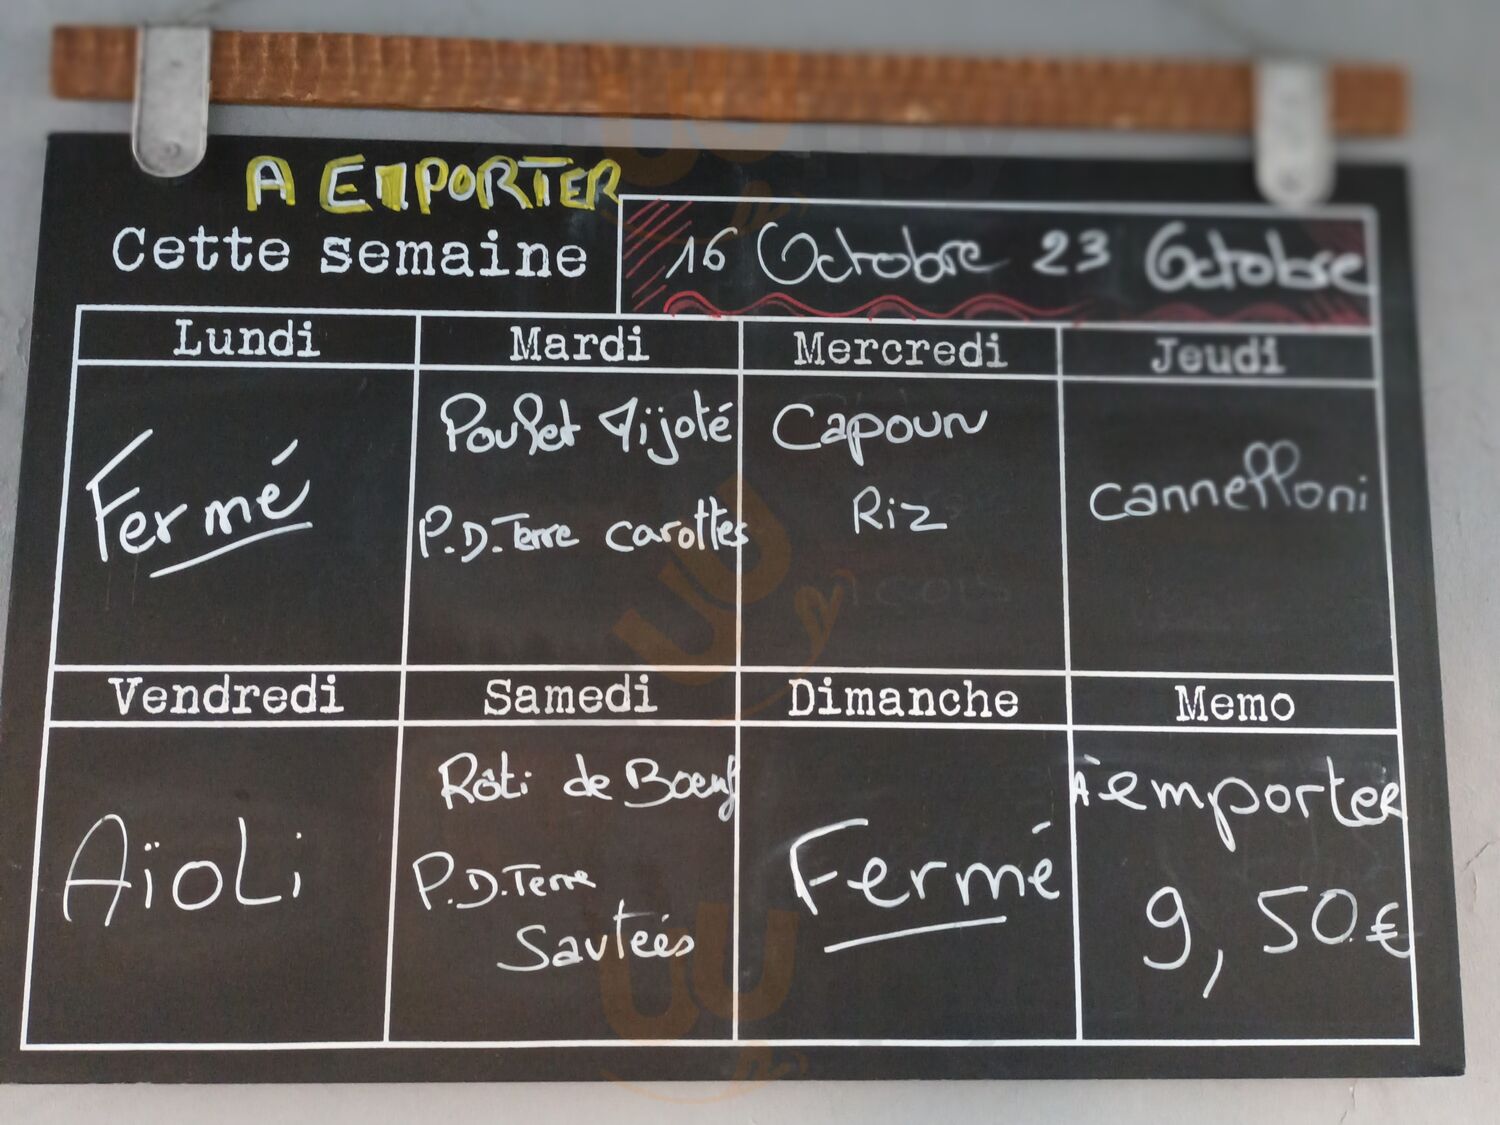 A EMPORTER
Cette semaine
16 Octobre 23 Octobre
Lundi
Mardi
Mercredi
Jeudi
Fermé
Poulet Mijoté
P.D.Terre carottes
Capoun
Riz
Cannelloni
Vendredi
Samedi
Dimanche
Memo
Aïoli
Rôti de Boeuf
P.D.Terre
Sautées
Fermé
A emporter
9,50€